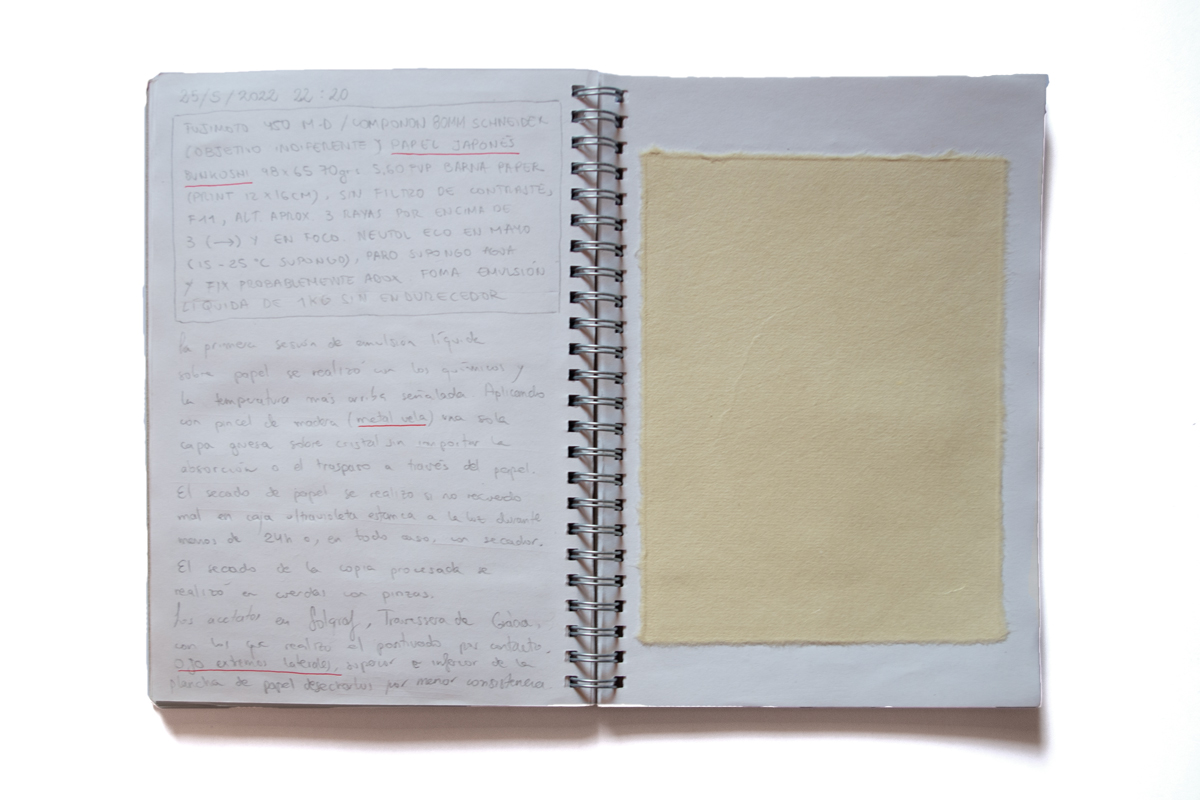 25/5/2022 22:20
FUJIMOTO 450 M-D / COMPONON 80MM SCHNEIDER
(OBJETIVO INDIFERENTE) PAPEL JAPONÉS
BUNKOSHI 48x65 70grs 5,60 PVP BARNA PAPER
(PRINT 12x16CM), SIN FILTRO DE CONTRASTE,
F11, ALT APROX 3 RAYAS POR ENCIMA DE
3 (→) Y EN FOCO. NEUTOL ECO EN MAYO
(15-25 °C SUPONGO), PARO SUPONGO AGUA
Y FIX PROBABLEMENTE ADOX FOMA EMULSIÓN
LÍQUIDA DE 1KG SIN ENDURECEDOR
La primera sesión de emulsión líquida
sobre papel se realizó con los químicos y
la temperatura más arriba señalada. Aplicando
con pincel de madera (metal vela) una sola
capa gruesa sobre cristal sin importar la
absorción o el traspaso a través del papel.
El secado de papel se realizo si no recuerdo
mal en caja ultravioleta estanca a la luz durante
menos de 24h o, en todo caso, con secador.
El secado de la copia procesada se
realizó en cuerdas con pinzas.
Los acetatos en Solgraf, Travessera de Gràcia,
con los que realizo el positivado por contacto.
Ojo extremos laterales, superior e inferior de la
plancha de papel desecharlos por menor consistencia